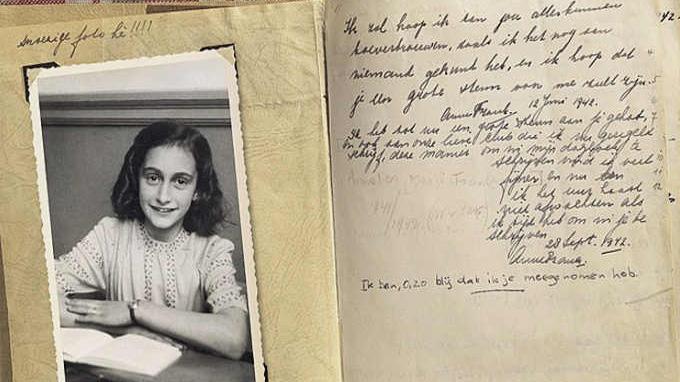 Snoezige foto hè!!!!
Ik zal hoop ik aan jou alles kunnen
toevertrouwen, zoals ik het nog aan
niemand gekund heb, en ik hoop dat
je een grote steun voor me zult zijn.
Anne Frank. 12 Juni 1942.
Ik heb tot nu een grote steun aan je gehad,
en ook aan onze lieve club die ik nu geregeld
schrijf, deze manier om in mijn dagboek te
schrijven vind ik veel
fijner en nu kan
ik het uur haast
niet afwachten als
ik tijd heb om in je te
schrijven.
28 Sept. 1942.
Anne Frank.
Ik ben, O, zo blij dat ik je meegenomen heb.